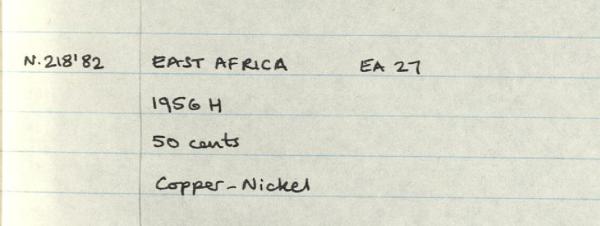 N.218'82 EAST AFRICA EA 27
1956 H
50 cents
Copper-Nickel